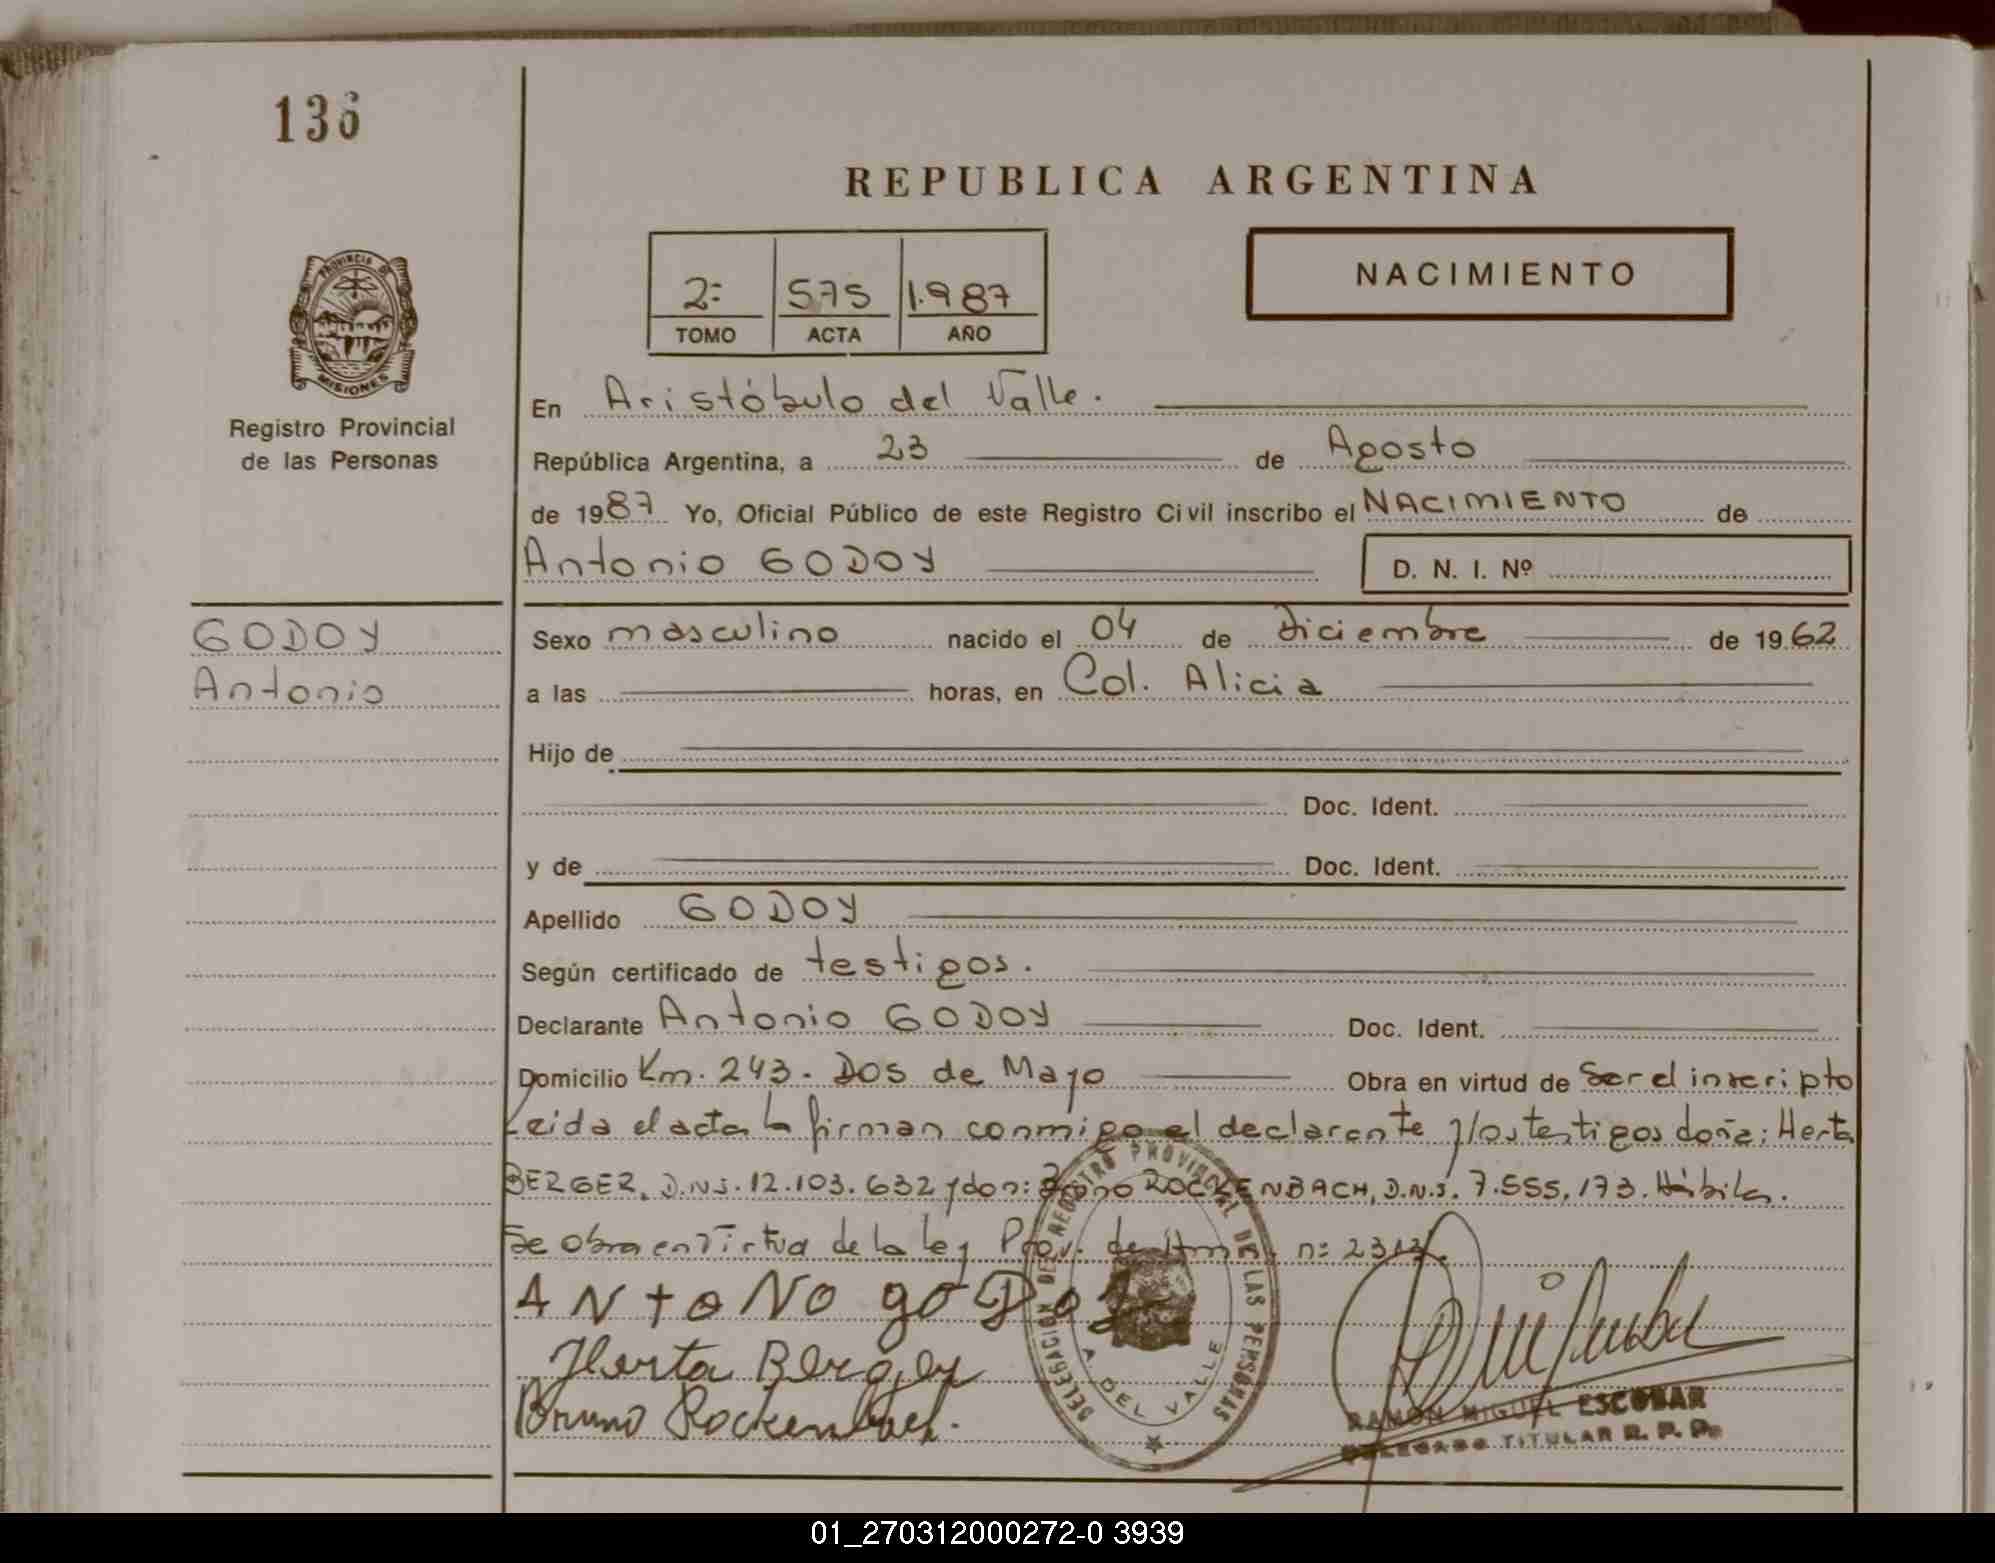 136
REPUBLICA ARGENTINA
PROVINCIA DE
MISIONES
Registro Provincial
de las Personas
2º 575 1.987
TOMO ACTA AÑO
NACIMIENTO
En Aristóbulo del Valle.
República Argentina, a 23 de Agosto
de 1987 Yo, Oficial Público de este Registro Civil inscribo el NACIMIENTO de
Antonio GODOY D. N. I. Nº
GODOY
Antonio
Sexo masculino nacido el 04 de Diciembre de 1962
a las horas, en Col. Alicia
Hijo de
Doc. Ident.
y de Doc. Ident.
Apellido GODOY
Según certificado de testigos.
Declarante Antonio GODOY Doc. Ident.
Domicilio Km. 243. Dos de Mayo Obra en virtud de Ser el inscripto
Leida el acta la firman conmigo el declarante y los testigos doña: Herta
BERGER, D.N.I. 12.103.632 y don: Bruno ROCKENBACH, D.N.I. 7.555.173. Hábiles.
Se obra en virtud de la ley Prov. de nº 2313.
ANtoNo goDoy
Herta Berger
Bruno Rockenbach.
DELEGACION DE REGISTRO PROVINCIAL DE LAS PERSONAS
A. DEL VALLE
RAMON MIGUEL ESCOBAR
DELEGADO TITULAR R. P. P.
01_270312000272-0 3939